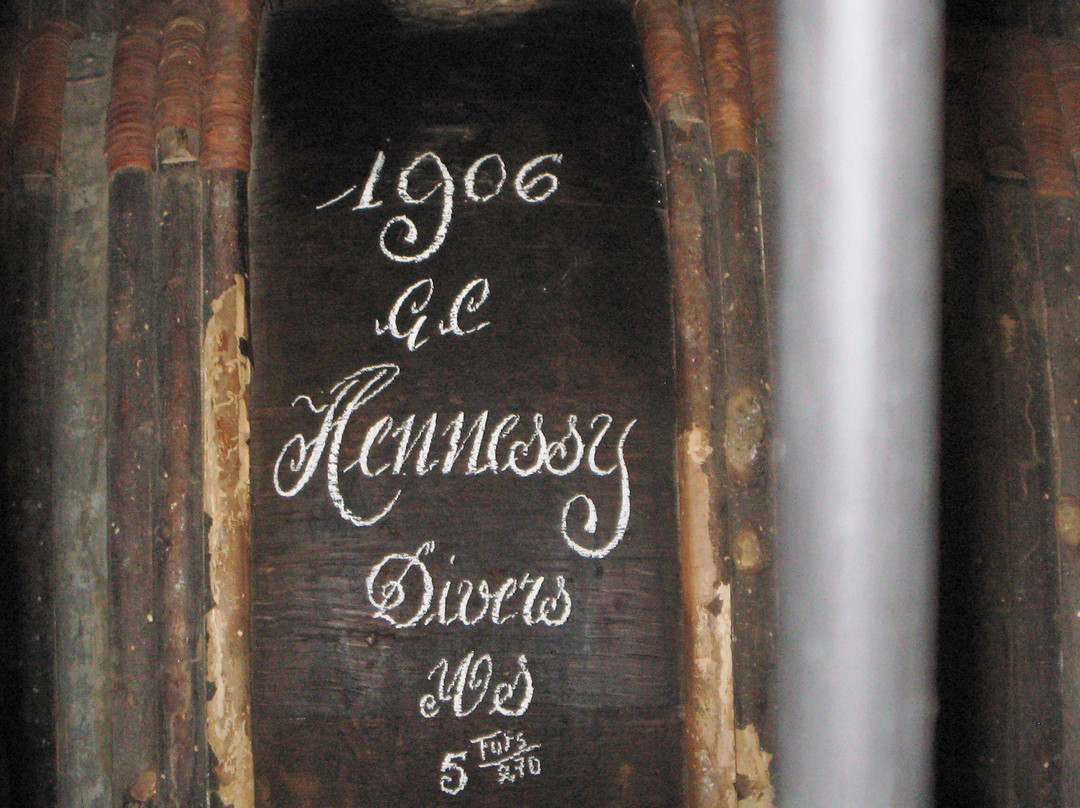 1906
G C
Hennessy
Divers
WS
5 Futs
270